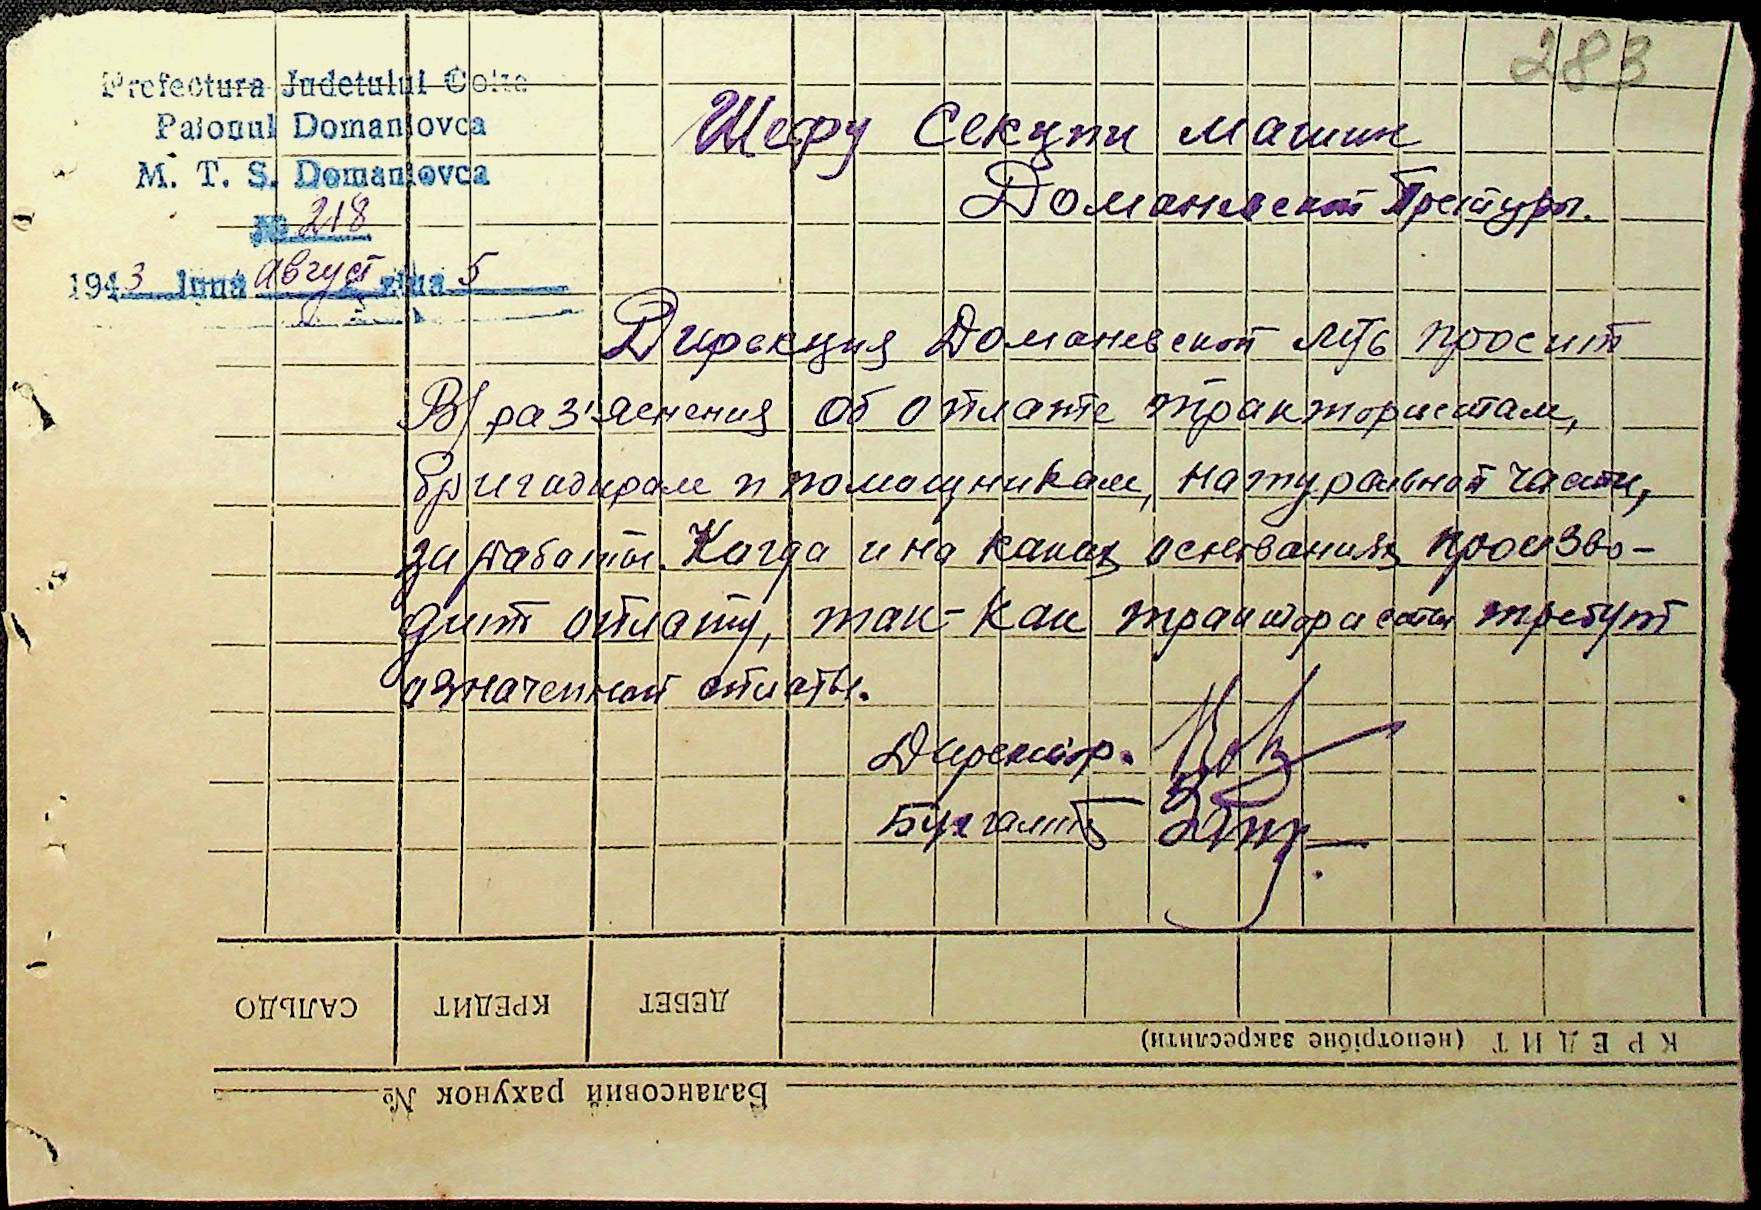 283
Prefectura Judetului Golta
Raionul Domaniovca
M. T. S. Domaniovca
№ 218
1943 luna август ziua 5
Шефу Секции машин
Доманевской Претуры.
Дирекция Доманевской МТС просит
В/ раз'яснения об оплате трактористам,
бригадирам и помощникам, натуральной части,
заработы. Когда и на каких основаниях произво-
дить оплату, так-как трактористы требуют
означенной оплаты.
Директор.
Бухгалтер
САЛЬДО
КРЕДИТ
ДЕБЕТ
КРЕДИТ (непотрібне закреслити)
Балансовий рахунок №